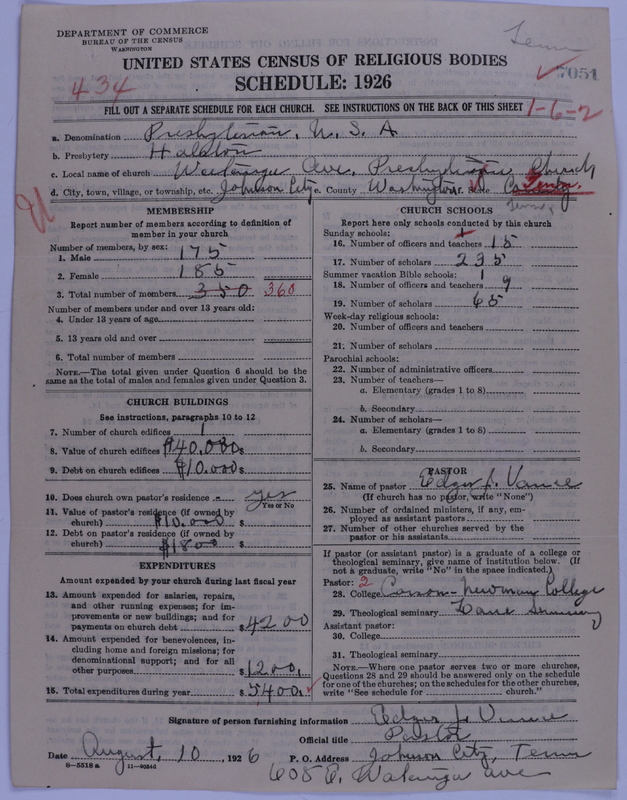 DEPARTMENT OF COMMERCE
BUREAU OF THE CENSUS
WASHINGTON
Tenn
7051
UNITED STATES CENSUS OF RELIGIOUS BODIES
SCHEDULE: 1926
434
FILL OUT A SEPARATE SCHEDULE FOR EACH CHURCH. SEE INSTRUCTIONS ON THE BACK OF THIS SHEET
1-6-2
a. Denomination Presbyterian, U. S. A
b. Presbytery Holston
c. Local name of church Watauga Ave, Presbyterian Church
d. City, town, village, or township, etc. Johnson City e. County Washington f. State Tenn.
Tenn,
MEMBERSHIP
Report number of members according to definition of member in your church
Number of members, by sex:
1. Male 175
2. Female 185
3. Total number of members 350 360
Number of members under and over 13 years old:
4. Under 13 years of age
5. 13 years old and over
6. Total number of members
NOTE.—The total given under Question 6 should be the same as the total of males and females given under Question 3.
CHURCH BUILDINGS
See instructions, paragraphs 10 to 12
7. Number of church edifices 1
8. Value of church edifices $40.000 $
9. Debt on church edifices $10.000 $
10. Does church own pastor's residence yes
Yes or No
11. Value of pastor's residence (if owned by
church) $10.000 $
12. Debt on pastor's residence (if owned by
church) $1800 $
EXPENDITURES
Amount expended by your church during last fiscal year
13. Amount expended for salaries, repairs,
and other running expenses; for im-
provements or new buildings; and for
payments on church debt $4200
14. Amount expended for benevolences, in-
cluding home and foreign missions; for
denominational support; and for all
other purposes $1200.
15. Total expenditures during year $5400.
CHURCH SCHOOLS
Report here only schools conducted by this church
Sunday schools: 1
16. Number of officers and teachers 15
17. Number of scholars 235
Summer vacation Bible schools: 1
18. Number of officers and teachers 9
19. Number of scholars 65
Week-day religious schools:
20. Number of officers and teachers
21. Number of scholars
Parochial schools:
22. Number of administrative officers
23. Number of teachers—
a. Elementary (grades 1 to 8)
b. Secondary
24. Number of scholars—
a. Elementary (grades 1 to 8)
b. Secondary
PASTOR
25. Name of pastor Edgar L. Vance
(If church has no pastor, write "None")
26. Number of ordained ministers, if any, em-
ployed as assistant pastors
27. Number of other churches served by the
pastor or his assistants
If pastor (or assistant pastor) is a graduate of a college or
theological seminary, give name of institution below. (If
not a graduate, write "No" in the space indicated.)
Pastor: 2
28. College Carson-Newman College
29. Theological seminary Lane Seminary
Assistant pastor:
30. College
31. Theological seminary
NOTE.—Where one pastor serves two or more churches,
Questions 28 and 29 should be answered only on the schedule
for one of the churches; on the schedules for the other churches,
write "See schedule for church."
Signature of person furnishing information Edgar L. Vance
Official title Pastor
Date August, 10, 1926 P. O. Address Johnson City, Tenn
8—5518 a
605 E. Watauga ave